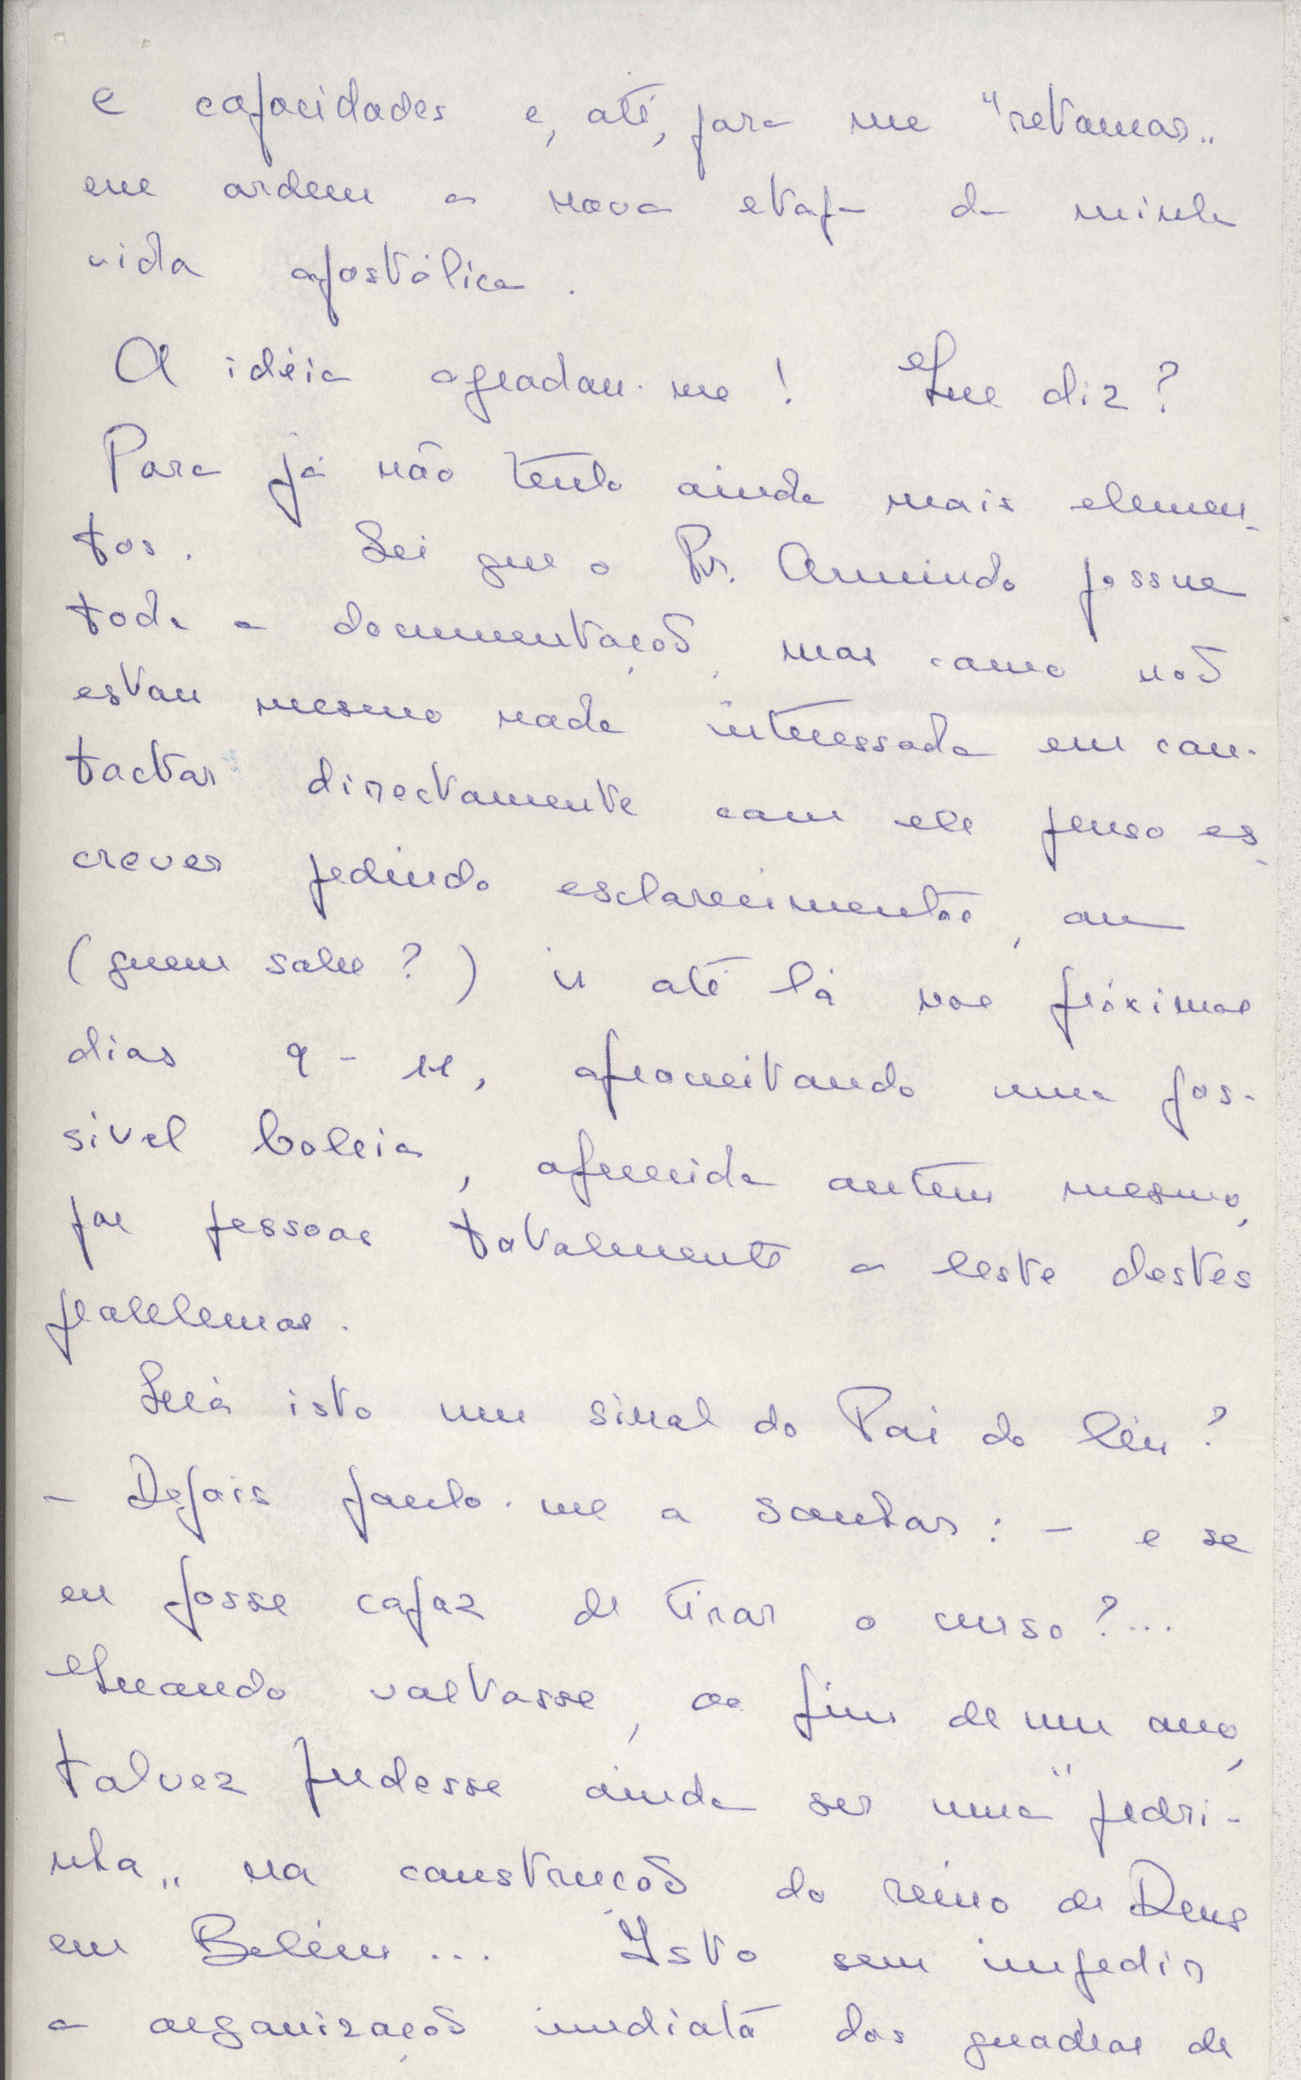 e capacidades e, até, para me "retomar"
em ordem a nova etapa da minha
vida apostólica.
A idéia agradou-me! Que diz?
Para já não tenho ainda mais elemen-
tos. Sei que o Pr. Armindo possue
toda a documentação, mas como não
estou mesmo nada interessada em con-
tactar directamente com ele penso es-
crever pedindo esclarecimentos, ou
(quem sabe?) ir até lá nos próximos
dias 9 - 11, aproveitando uma pos-
sivel boleia, oferecida ontem mesmo,
por pessoas totalmente a leste destes
problemas.
Será isto um sinal do Pai do Céu?
- Depois ponho-me a sonhar: - e se
eu fosse capaz de tirar o curso?...
Quando voltasse, ao fim de um ano,
talvez pudesse ainda ser uma "pedri-
nha" na construção do reino de Deus
em Belém... Isto sem impedir
a organização imediata dos quadros de